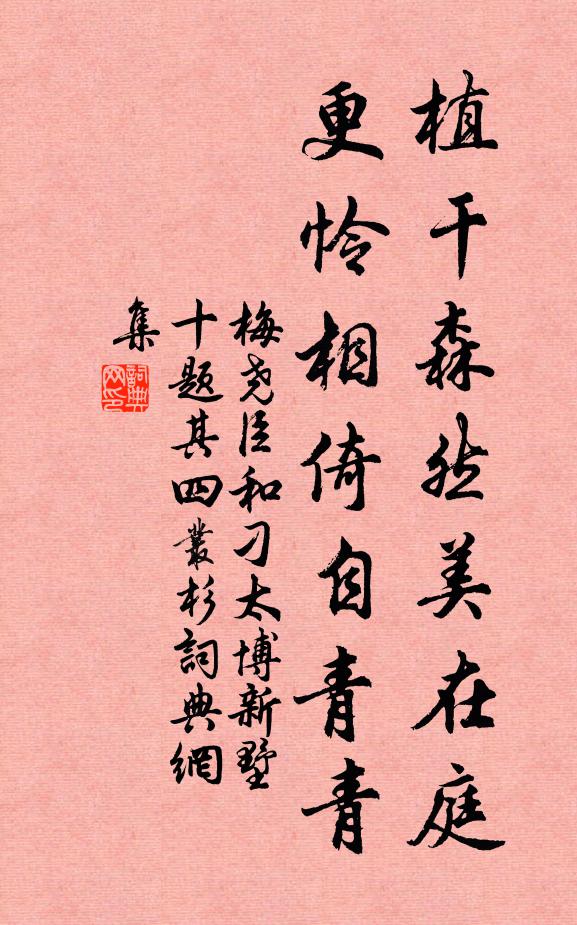 植干森然美在庭
更怜相倚自青青
梅尧臣和刁太博新墅
十题其四叢杉詞典網
集
詞典
网印